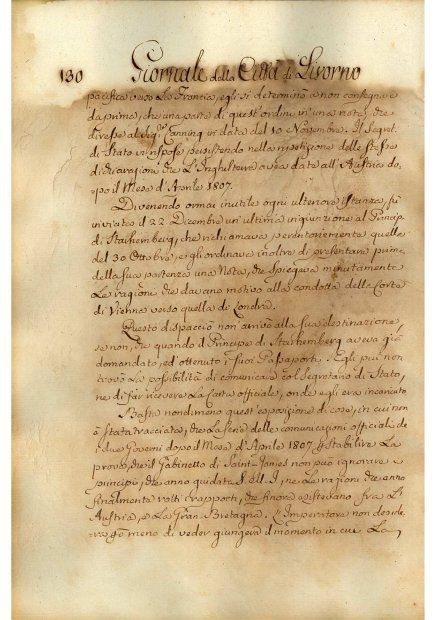 130 Giornale della Città di Livorno
pacifica verso la Francia, egli si determinò a non consegnare
da prima, che una parte di quest'ordini in una nota, che
diresse al Sigr. Canning in data del 10 Novembre. Il Segret.
di Stato rispose persistendo nella ripetizione delle stesse
dichiarazioni che l'Inghilterra avea date all'Austria do-
po il Mese d'Aprile 1807.
Divenendo ormai inutile ogni ulteriore istanza, fu
inviata il 22 Dicembre un'ultima ingiunzione al Principe
di Starhemberg, che richiamava perentoriamente quella
del 30 Ottobre, e gli ordinava inoltre di presentare prima
della sua partenza una Nota, che spiegava minutamente
le ragioni che davano motivo alla condotta della Corte
di Vienna verso quella di Londra.
Questo dispaccio non arrivò alla sua destinazione,
se non, che quando il Principe di Starhemberg aveva già
domandato, ed ottenuto i suoi Passaporti. Egli più non
trovò la possibilità di comunicare col Segretario di Stato,
ne di far ricevere la Carta officiale, onde egli era incaricato
Basta nondimeno quest'esposizione di cose, in cui non
è stata tracciata, che la serie delle comunicazioni officiali de
i due Governi dopo il Mese d'Aprile 1807 stabilire la
prova, che il Gabinetto di Saint-James non può ignorare i
principj, che anno guidato S. M. I. ne le ragioni che anno
finalmente rotti i rapporti, che finora esistevano fra l'
Austria, e la Gran Bretagna. L'Imperatore non deside-
ra meno di veder giungere il momento in cui la